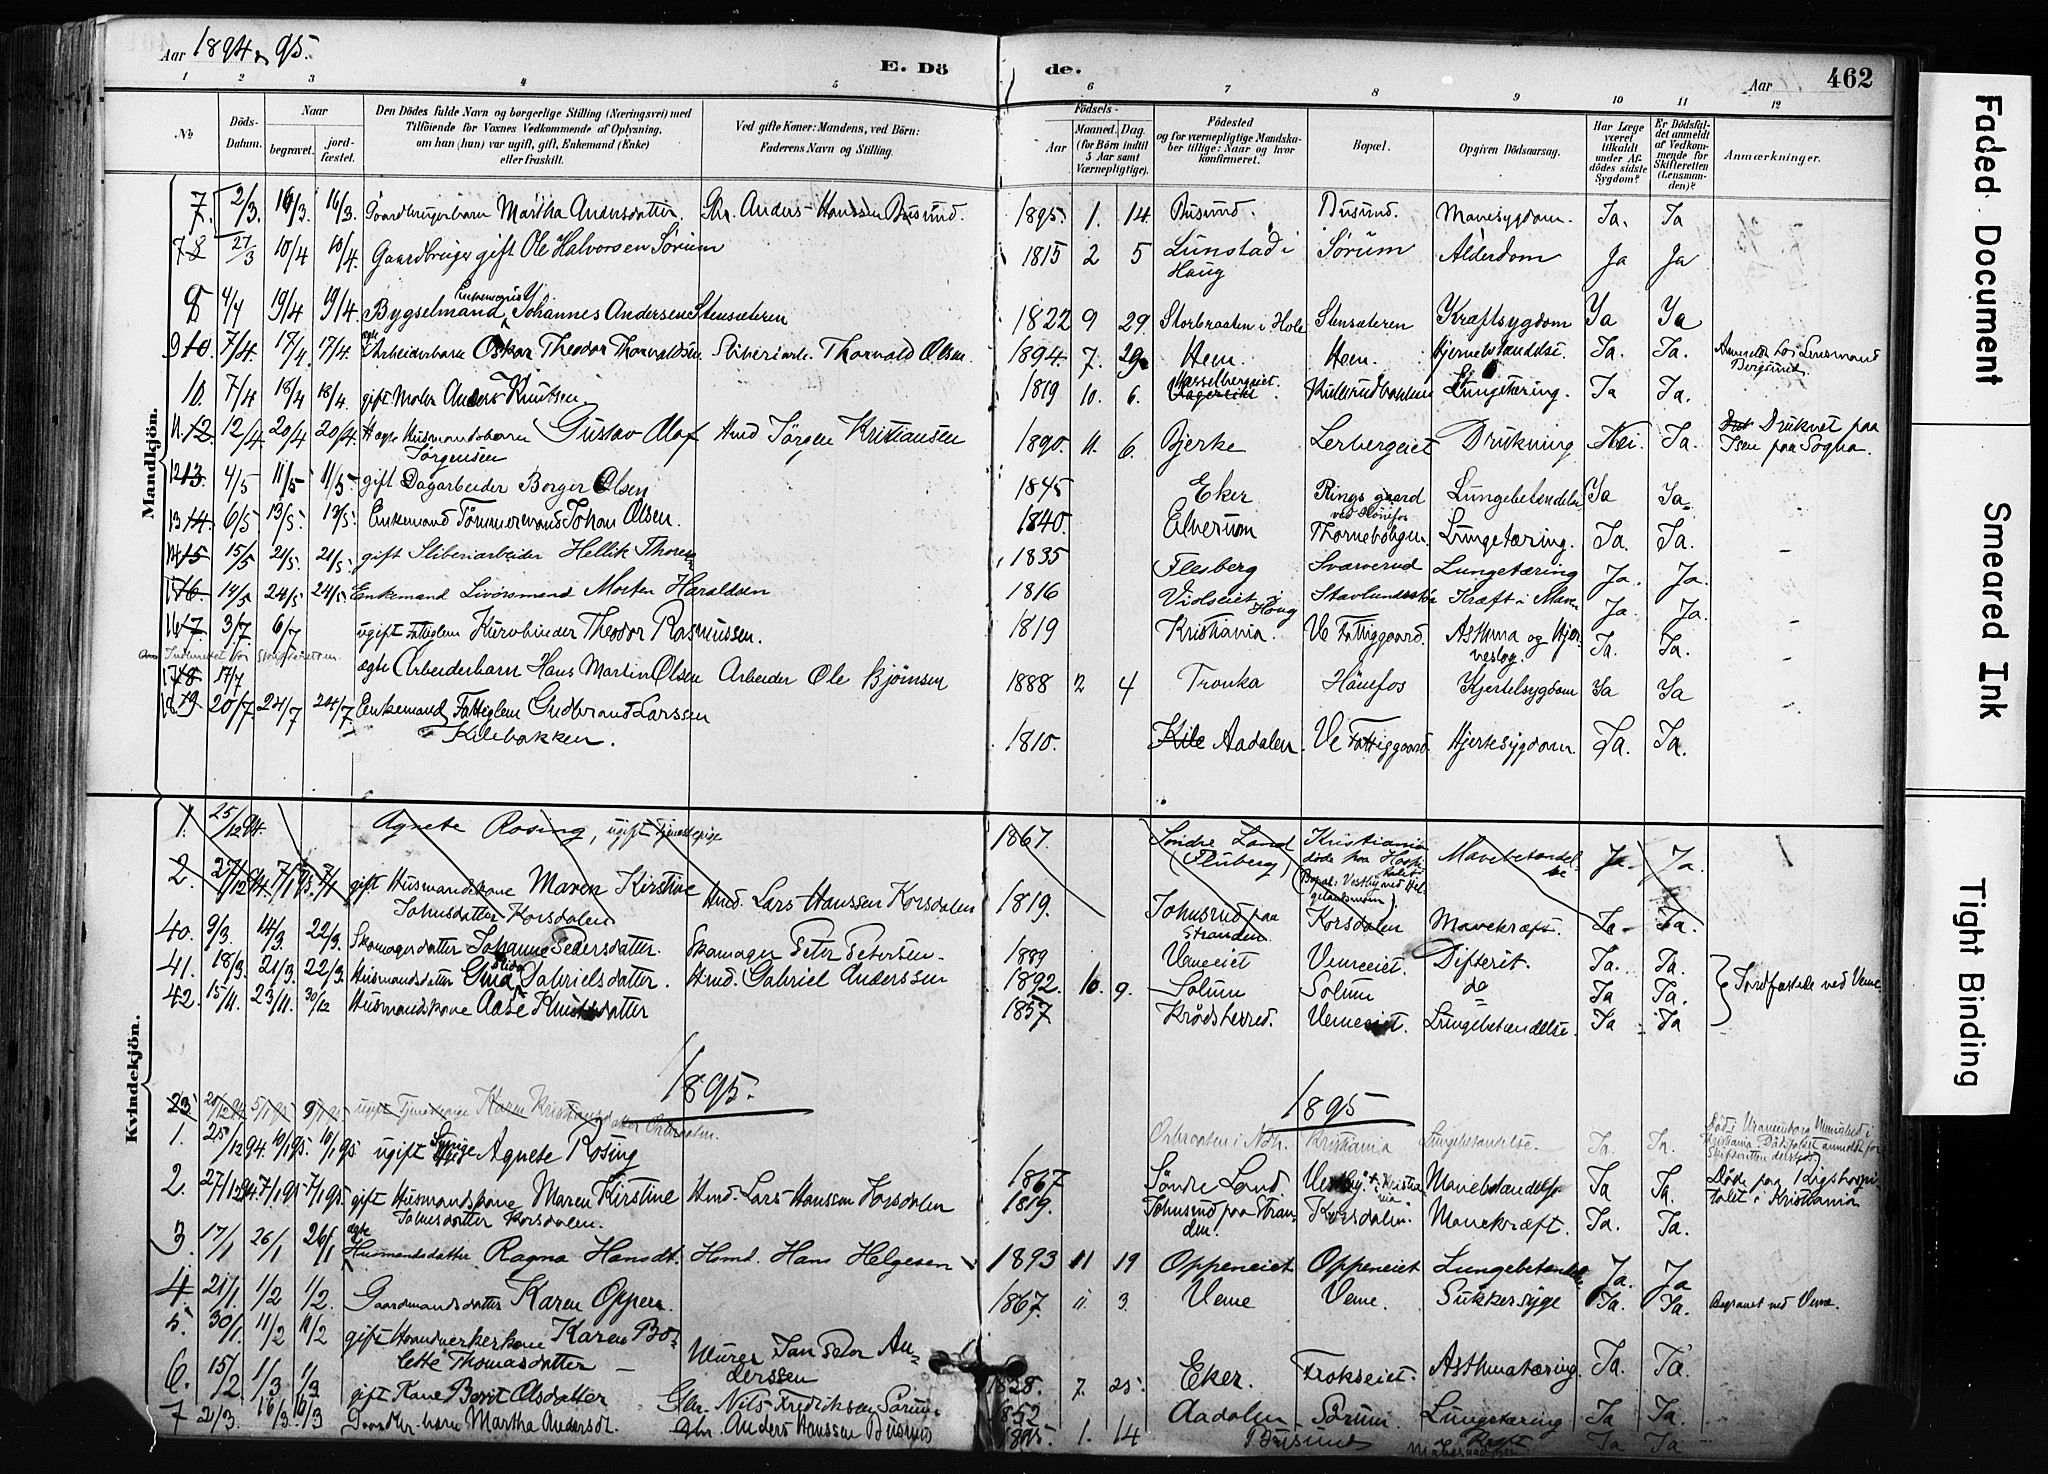 Aar 1894 & 95.
E. Döde.
Aar
462
1 2 3 4 5 6 7 8 9 10 11 12
No
Döds-Datum.
Naar
begravet.
jordfæstet.
Den Dödes fulde Navn og borgerlige Stilling (Næringsvei) med
Tilföiende for Voxnes Vedkommende af Oplysning,
om han (hun) var ugift, gift, Enkemand (Enke)
eller fraskilt.
Ved gifte Koner: Mandens, ved Börn:
Faderens Navn og Stilling.
Födsels-
Aar
Maaned. Dag.
(for Börn indtil
5 Aar samt
Værnepligtige).
Födested
og for værnepligtige Mandska-
ber tillige: Naar og hvor
konfirmeret.
Bopæl.
Opgiven Dödsaarsag.
Har Læge
været
tilkaldt
under Af-
dödes sidste
Sygdom?
Er Dödsfal-
det anmeldt
af Vedkom-
mende for
Skifteretten
(Lensman-
den)?
Anmærkninger.
Mandkjön.
7. 2/3. 16/3. 16/3. Gaardbrugerbarn Martha Andersdatter. Gbr. Anders Hanssen Busund. 1895. 1. 14. Busund. Busund. Mavesygdom. Ja. Ja
7 8 27/3 10/4 10/4. Gaardbruger gift Ole Halvorsen Sørum 1815 2 5 Lunstad i Haug Sørum Alderdom Ja Ja
8 4/4 19/4 19/4 Bygselmand, Enkemand Johannes Andersen Stensæteren 1822 9 29. Storbraaten i Hole Stensæteren Kræftsygdom Ja Ja
9 10. 7/4. 17/4. 17/4. ægte Arbeiderbarn Oskar Theodor Thorvaldsen Sliberiarb. Thorvald Olsen. 1894. 7. 29. Hem. Hem. Hjernebetændelse. Ja. Ja. Anmeldt for Lensmand
10. 7/4 18/4 18/4. gift Maler Anders Knutsen 1819 10. 6. Hesselbergeiet. Kullerudbakken Lungetæring. Ja Ja.
11. 12. 12/4 20/4 20/4. ægte Husmandsbarn Gustav Olaf Jørgensen Hmd Jörgen Kristiansen 1890. 11. 6. Bjerke Lerbergeiet Drukning Nei. Ja. Druknet paa Isen paa Sogna.
12 13. 4/5 11/5 11/5. gift Dagarbeider Borger Olsen 1845 Eker Ringsgaard ved Hönefos Lungebetændelse Ja Ja
13 14. 6/5 13/5. 13/5. Enkemand Tömmermand Johan Olsen. 1840. Elverum Thornebölgen. Lungetæring. Ja. Ja.
14 15 15/5 21/5. 21/5. gift Sliberiarbeider Hellik Thoren 1835 Flesberg Svarverud Lungetæring Ja. Ja.
15 16. 14/5 24/5 24/5. Enkemand Livörsmand Morten Haraldsen 1816 Violseiet i Haug Kræft i Maven Ja. Ja.
16 17. 3/7 6/7 ugift Fattiglem Kurvbinder Theodor Rasmussen. 1819 Kristiania. Ve Fattiggaard. Asthma og Ja. Ja.
17 18 17/7 ægte Arbeiderbarn Hans Martin Olsen Arbeider Ole Bjørnsen 1888 2 4 Tronka Hönefos Kjertelsygdom Ja Ja
18 19 20/7. 24/7 24/7. Enkemand Fattiglem Gudbrand Larssen Kilebakken. 1810. Kile Aadalen. Ve Fattiggaard. Hjertesygdom Ja. Ja.
Kvindekjön.
1. 25/12 94. Agnete Rosing, ugift Tjenestepige 1867. Søndre Land (Fluberg) Kristiania döde paa Hospitalet (Bopæl: Vestby ved Helgelandsmoen). Mavebetændelse Ja. Ja.
2. 27/12 94. 7/1 95. 7/1 gift Husmandskone Maren Kirstine Johnsdatter Korsdalen Hmd. Lars Hanssen Korsdalen 1819. Johnsrud paa Stranden Korsdalen Mavekræft. Ja. Ja.
40. 9/3. 14/3. 22/3. Skomagerdatter Johanne Pedersdatter. Skomager Peter Petersen. 1889 Vemeeiet Vemeeiet. Difterit. Ja. Ja.
41. 18/3. 21/3. 22/3. Husmandsdatter Gabrielsdatter. Hmd. Gabriel Anderssen 1892. 10. 9. Solum Solum do Ja Ja. Jordfæstede ved Veme.
42. 15/11. 23/11. 30/12 Husmandskone Aase Knutsdatter 1857 Krödsherred. Vemeeiet. Lungebetændelse. Ja Ja
1895. 1895
23 20/12 94 5/1 95 9/1 95 ugift Tjenestepige Karen Kristiansdatter Orbraaten. Orbraaten i Kristiania Lungebetændelse. Ja. Ja.
1. 25/12 94. 10/1 95. 10/1 95. ugift Agnete Rosing 1867 Söndre Land Mavebetændelse Ja Ja. Döde paa Rigshospitalet i Kristiania
2. 27/12 94. 7/1 95 7/1 95. gift Husmandskone Maren Kirstine Johnsdatter Korsdalen. Hmd. Lars Hanssen Korsdalen 1819. Johnsrud paa Stranden. Korsdalen. Mavekræft. Ja. Ja.
3. 17/1 26/1 26/1 ægte Husmandsdatter Ragna Hansdt. Hsmd. Hans Helgesen 1893 11 19 Oppeneiet Oppeneiet Lungebetændelse Ja. Ja
4. 21/1. 1/2 1/2. Gaardmandsdatter Karen Oppen. 1867. 11. 3. Veme Veme. Sukkersyge Ja. Ja. Begravet ved Veme.
5. 30/1. 11/2 11/2 gift Haandverkerkone Karen Bolette Thomasdatter Murer Jan Peter Anderssen 1828. 7. 25. Eker. Frokseiet. Asthmatæring Ja. Ja
6. 15/2 1/3 1/3 gift Kone Berit Olsdatter Gbr. Nils Fredriksen Sørum 1852 Aadalen Sörum Lungetæring Ja Ja
7 2/3. 16/3 16/3 Gaardbr. barn Martha Andersdt. Gbr. Anders Hanssen Busund 1895. 1. 14 Busund Mavesygdom Ja Ja
Faded Document
Smeared Ink
Tight Binding